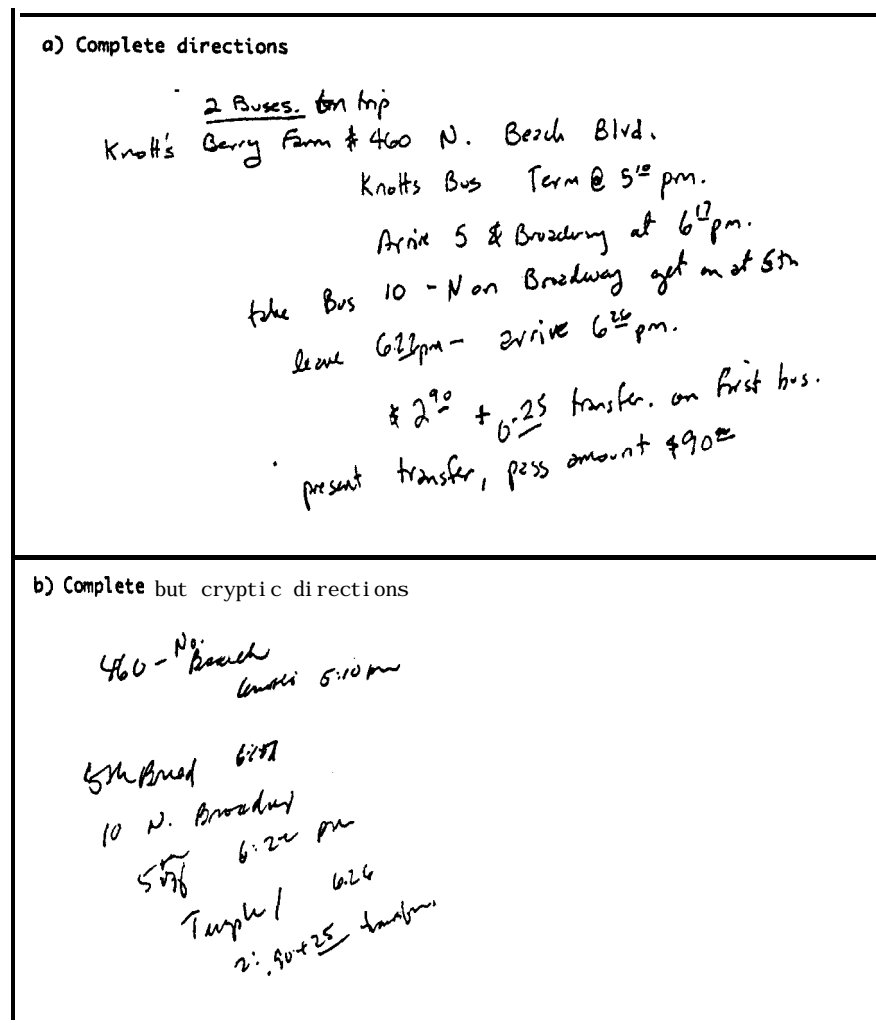 a) Complete directions
2 Buses. trip
Knott's Berry Farm # 460 N. Beach Blvd.
Knotts Bus Term @ 5¹⁰ pm.
Arrive 5 & Broadway at 6¹⁷ pm.
take Bus 10 - N on Broadway get on at 5th
leave 6:22 pm - arrive 6²⁶ pm.
$2⁹⁰ + 0.25 transfer. on first bus.
present transfer, pass amount $90
b) Complete but cryptic directions
460 - No. Beach
5:10 pm
5th Broad
10 N. Broadway
6:22 pm
Temple 6:26
2.90 + 25 transfer